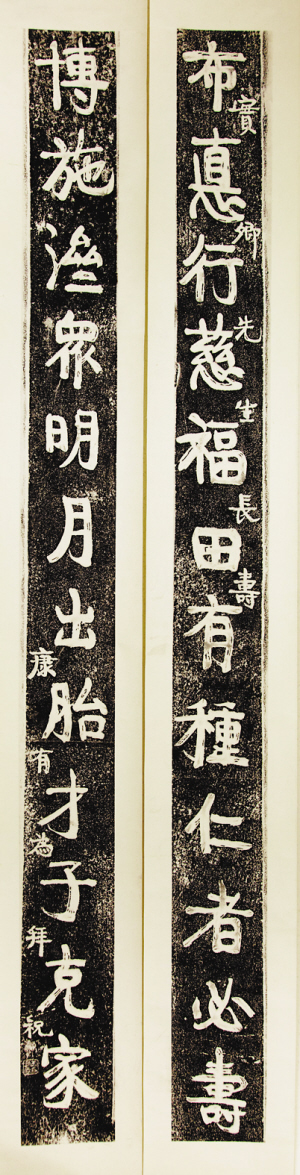 布惪行慈福田有種仁者必壽
卿先生長壽
博施濟眾明月出胎才子克家
康有為拜祝